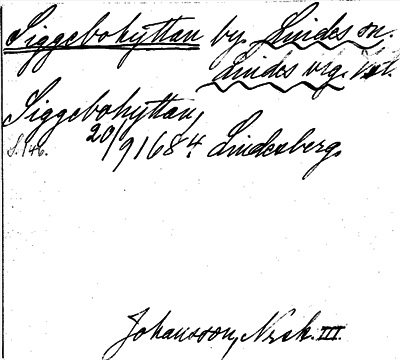 Siggebohyttan by. Lindes sn.
Lindes vsg. Vstl.
Siggebohyttan,
S. 46. 20/9 1684 Lindesberg.
Johansson, Nrsk. III.